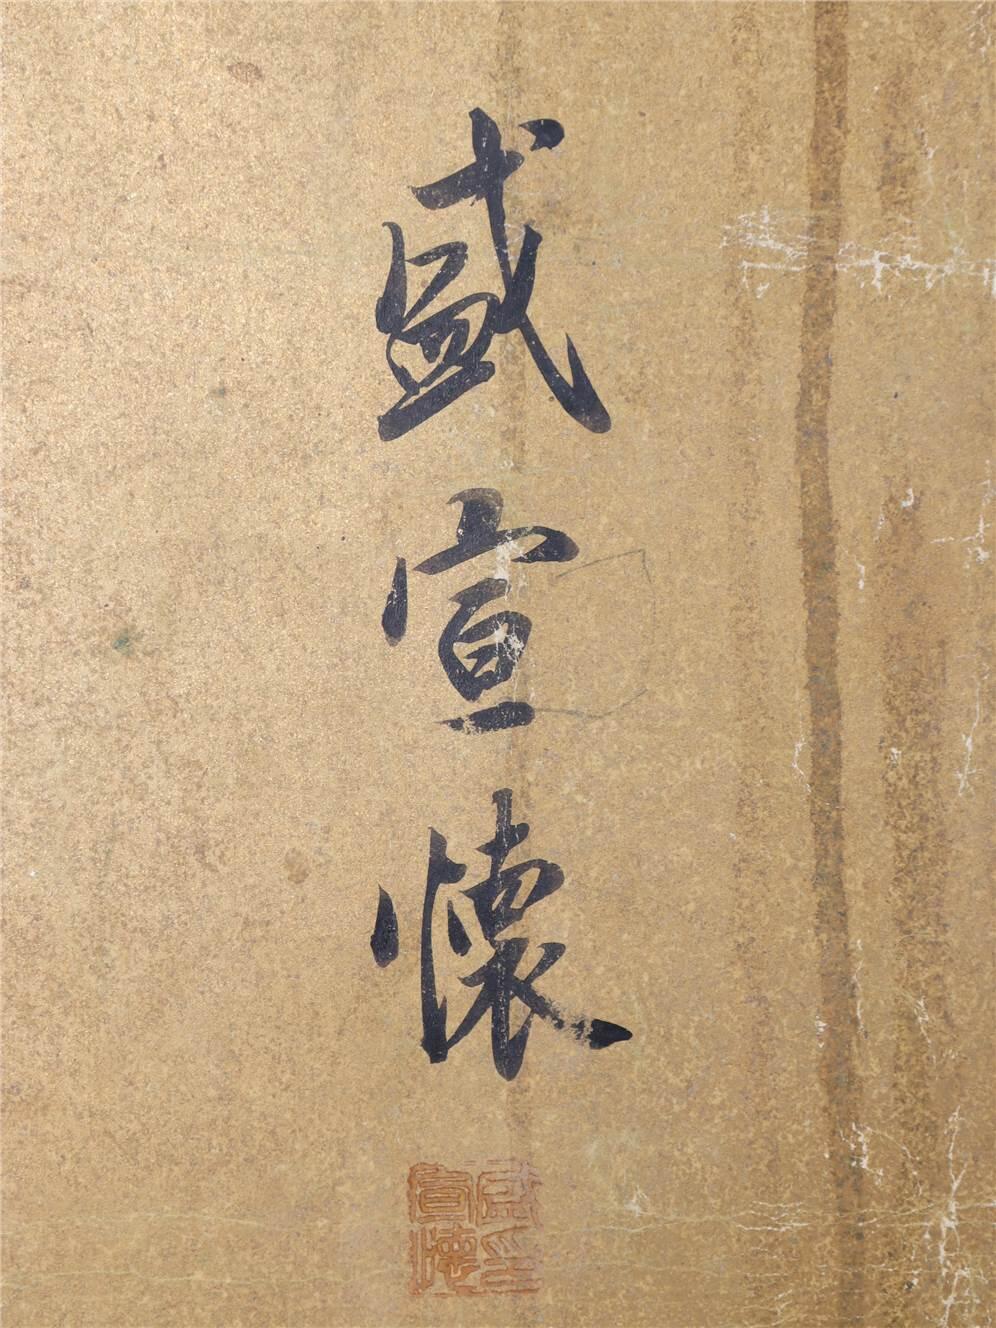 盛宣懷
盛印
宣懷